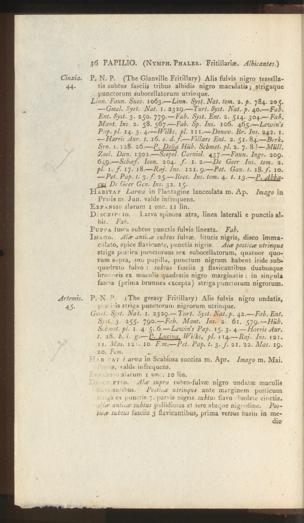 36 PAPILIO. (Nymph. Phaler. Fritillariæ. Albicantes.)
Cinxia. P. N. P. (The Glanville Fritillary) Alis fulvis nigro tessella-
44. tis subtus fasciis tribus albidis nigro maculatis; strigaque
punctorum subocellatorum utrinque.
Linn. Faun. Suec. 1063.—Linn. Syst. Nat. tom. 2. p. 784. 205.
—Gmel. Syst. Nat. 1. 2329.—Turt. Syst. Nat. p. 40.—Fab.
Ent. Syst. 3. 250. 779.—Fab. Syst. Ent. 2. 514. 304.—Fab.
Mant. Ins. 2. 58. 567.—Fab. Sp. Ins. 106. 465.—Lewin's
Pap. pl. 14. 3. 4.—Wilks. pl. 111.—Donov. Br. Ins. 242. 1.
—Harris Aur. t. 16. c. d. f.—Villars Ent. 2. 51. 84.—Berk.
Syn. 1. 128. 26.—P. Delia Hüb. Schmet. pl. 2. 7. 8.—Müll.
Zool. Dan. 1302.—Scopol Carniol. 437.—Faun. Ingr. 209.
649.—Schæf. Icon. 204. f. 1. 2.—De Geer Ins. tom. 2.
pl. 1. f. 17. 18.—Raj. Ins. 121. 9.—Pet. Gaz. t. 18. f. 10.
—Pet. Pap. t. 3. f. 15.—Reai. Ins. tom. 4. t. 13.—P. Abba-
cus De Geer Gen. Ins. 32. 15.
Habitat Larva in Plantagine lanceolata m. Ap. Imago in
Pratis m. Jun. valde infrequens.
Expansio alarum 1 unc. 11 lin.
Descriptio. Larva spinosa atra, linea laterali e punctis al-
bis. Fab.
Puppa fusca subtus punctis fulvis lineata. Fab.
Imago. Alæ anticæ subtus fulvæ, lituris nigris, disco imma-
culato, apice flavicante, punctis nigris. Alæ posticæ utrinque
striga postica punctorum sex subocellatorum, quatuor quo-
rum supra, seu pupilla, punctum nigrum habent iride sub-
quadrato fulvo: subtus fasciis 3 flavicantibus duabusque
brunneis ex maculis quadratis nigro marginatis: in singula
fascia (prima brunnea excepta) striga punctorum nigrorum.
Artemis. P. N. P. (The greasy Fritillary) Alis fulvis nigro undatis,
45. posticis striga punctorum nigrorum utrinque.
Gmel. Syst. Nat. 1. 2320.—Turt. Syst. Nat. p. 42.—Fab. Ent.
Syst. 3. 255. 790.—Fab. Mant. Ins. 2. 61. 579.—Hüb.
Schmet. pl. 1. 4. 5. 6.—Lewin's Pap. 15. 3. 4.—Harris Aur.
t. 28. h. i. g.—P. Lucina, Wilks, pl. 114.—Raj. Ins. 121.
11. Mas. 12. 10. Fœm.—Pet. Pap. t. 3. f. 21. 22. Mas. 19.
20. Fem.
Habitat Larva in Scabiosa succisa m. Apr. Imago m. Mai.
valde infrequens.
Expansio alarum 1 unc. 10 lin.
Descriptio. Alæ supra rubro-fulvæ nigro undatæ maculis
flavicantibus. Posticæ utrinque ante marginem posticum
striga ex punctis 7. parvis nigris subtus flavo-viridete cinctis.
Alæ anticæ subtus pallidiores et fere absque nigredine. Pos-
ticæ subtus fasciis 3 flavicantibus, prima versus basin in me-
dio